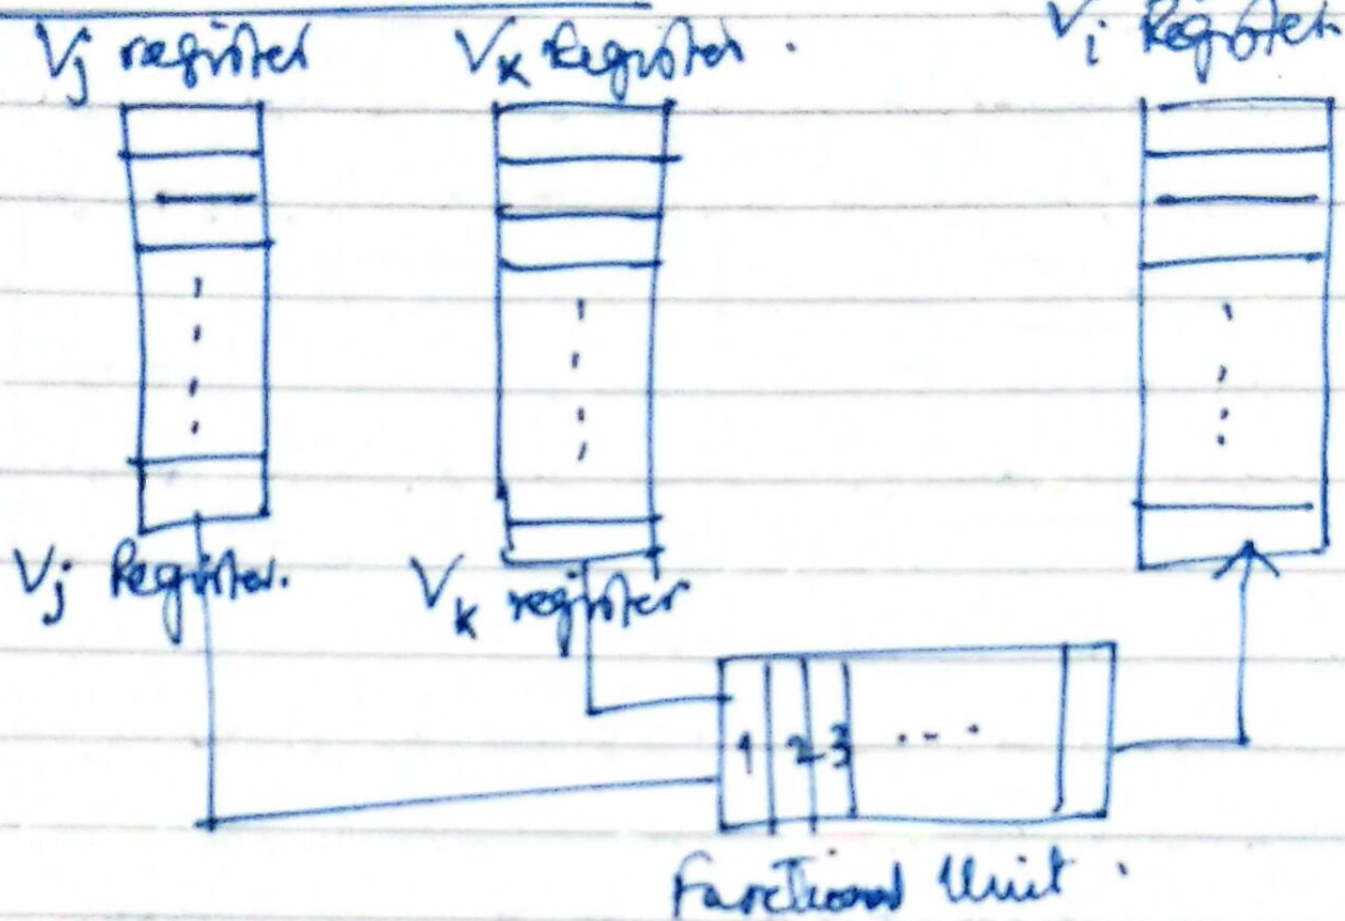 Vj register Vk Register. Vi Register
Vj Register. Vk register
1 2 3 ....
Functional Unit.